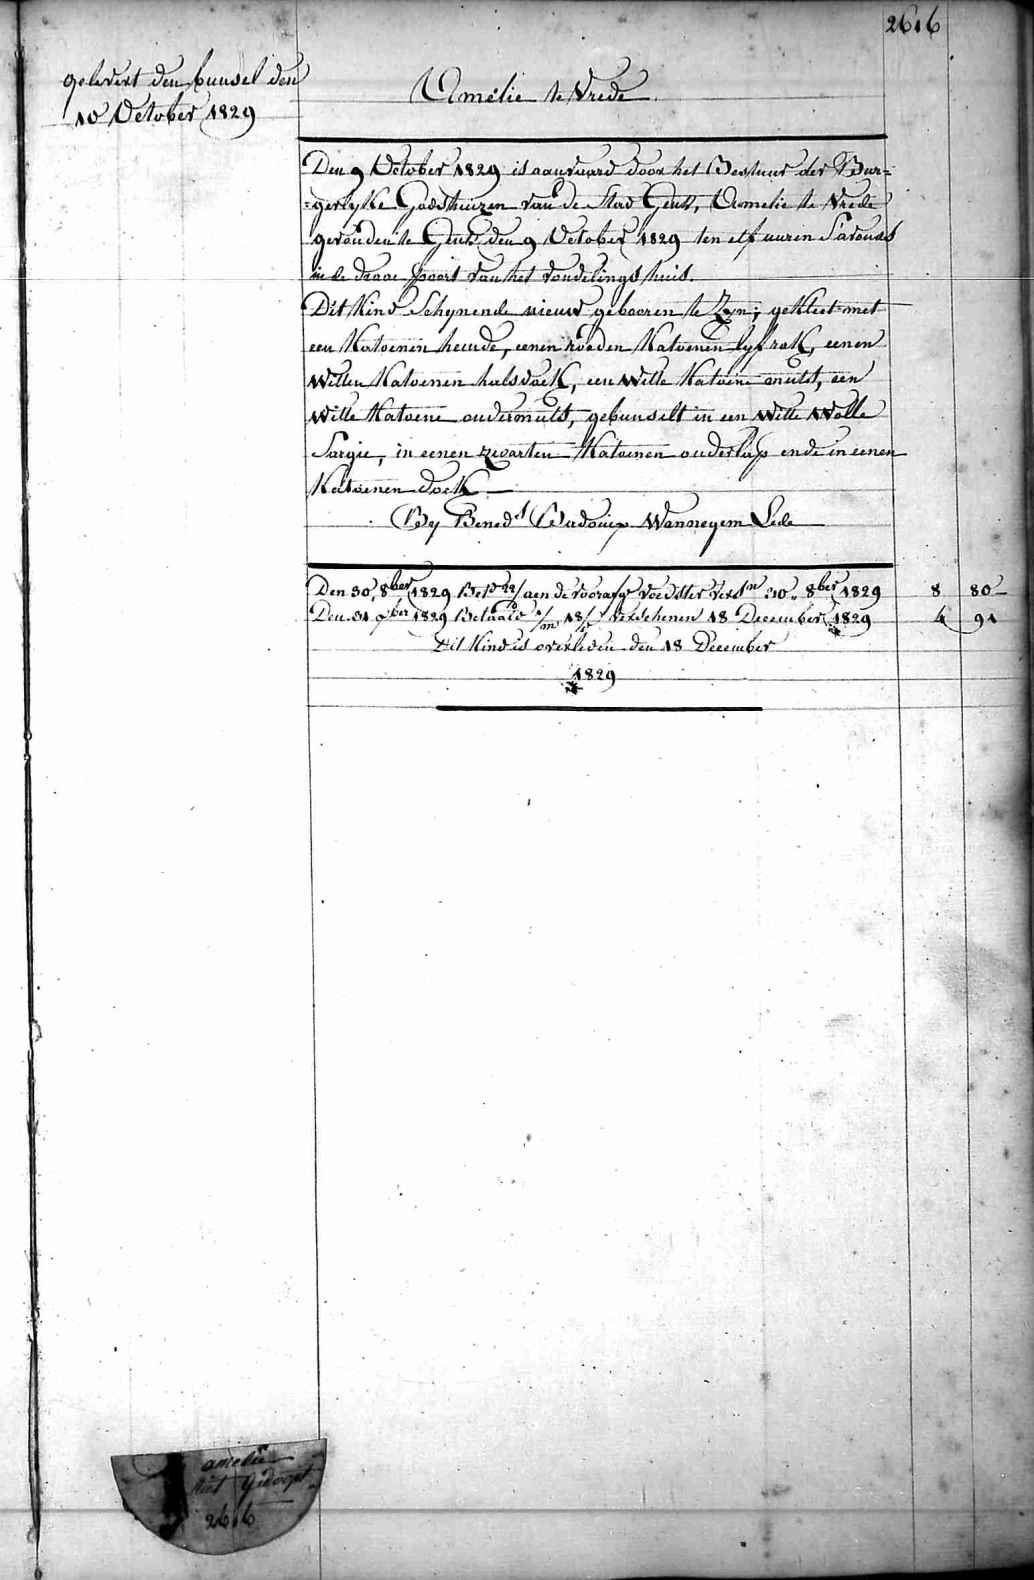 2616
gelevert den bunsel den
10 October 1829
Amélie te Vrede.
Den 9 October 1829 is aanvaard door het Bestuur der Bur=
=gerlyke Godshuizen van de Stad Gend, Amelie te Vrede
gevonden te Gend den 9 October 1829 ten elf uuren S'avonds
in de draae poort van het vondelings huis.
Dit Kind Schynende nieuw gebooren te Zyn; gekleet met
een Katoenen hemde, eenen rooden Katoenen lyfrok, eenen
Witten Katoenen halsdoek, een Witte Katoene muts, een
Witte Katoene ondermuts, gebunselt in een Witte Wolle
Sargie, in eenen zwarten Katoenen onderlap ende in eenen
Katoenen doek
By Bened.t Badouin Wannegem Lede
Den 30, 8ber 1829 Bet.d 22/ aen de voorz. voedster vers.n 30. 8ber 1829 8 80
Den 31 Xber 1829 Betaald 18/ Verschenen 18 December 1829 4 91
Dit Kind is overleden den 18 December
1829
amelie
niet gedoopt
2616